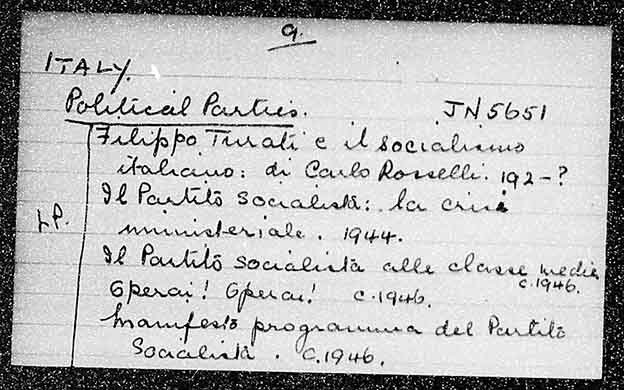 9.
ITALY.
Political Parties. JN5651
Filippo Turati e il socialismo
italiano: di Carlo Rosselli. 192-?
Il Partito Socialista: la crisi
ministeriale. 1944.
LP.
Il Partito Socialista alle classe medie
c.1946.
Operai! Operai! c.1946.
Manifesto programma del Partito
Socialista. c.1946.